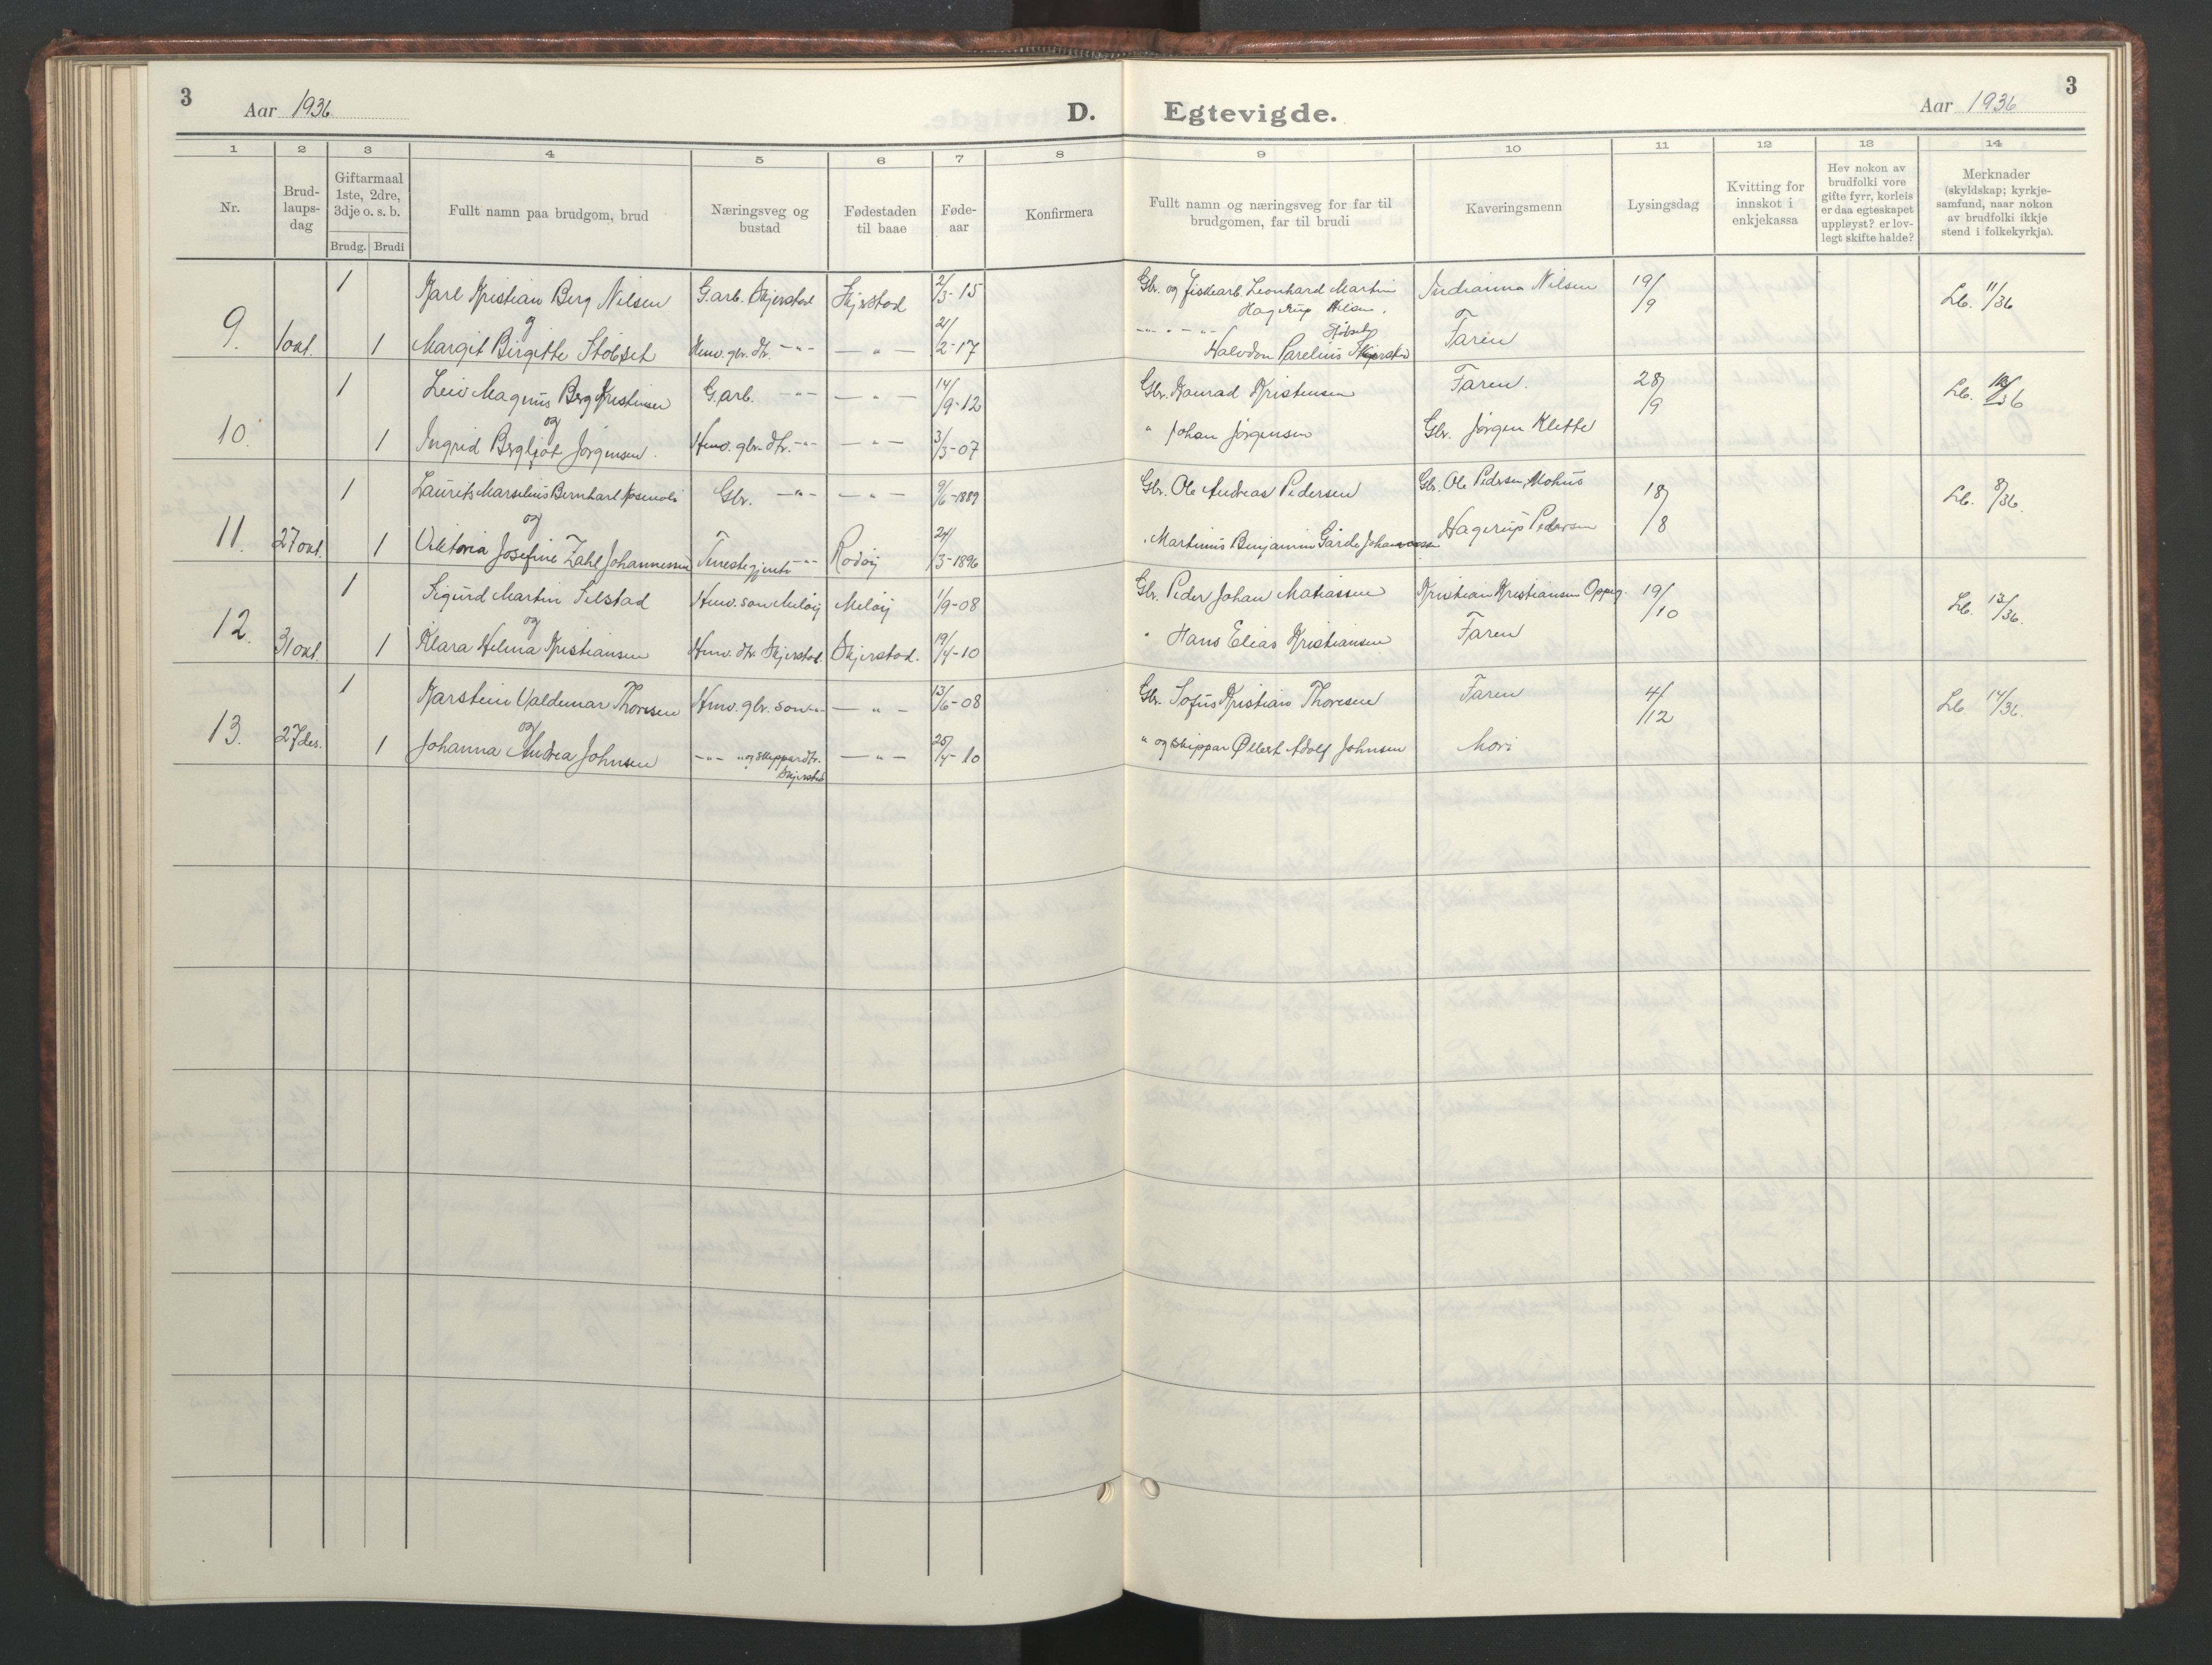 3
Aar 1936.
D.
Egtevigde.
Aar 1936
3
1 2 3 4 5 6 7 8 9 10 11 12 13 14
Nr.
Brud-
laups-
dag
Giftarmaal
1ste, 2dre,
3dje o. s. b.
Brudg. Brudi
Fullt namn paa brudgom, brud
Næringsveg og
bustad
Fødestaden
til baae
Føde-
aar
Konfirmera
Fullt namn og næringsveg for far til
brudgomen, far til brudi
Kaveringsmenn
Lysingsdag
Kvitting for
innskot i
enkjekassa
Hev nokon av
brudfolki vore
gifte fyrr, korleis
er daa egteskapet
uppløyst? er lov-
legt skifte halde?
Merknader
(skyldskap; kyrkje-
samfund, naar nokon
av brudfolki ikkje
stend i folkekyrkja).
1 Karl Kristian Berg Nilsen G.arb. Skjerstad Skjerstad 2/3-15 Gbr. og fiskearb. Leonhard Martin Indianna Nilsen 19/9 Lb. 11/36
Hagerup Nilsen.
og
9. 1 okt. 1 Margit Birgitte Støbset Hmv. gbr. dtr. -"- -"- 21/2-17 -"- - -"- Halvdan Parelius Støbset Faren
1 Leiv Magnus Berg Kristensen G.arb. -"- -"- 14/9-12 Gbr. Konrad Kristensen Faren. 28/9 Lb. /36
og
10. 1 Ingrid Bergljot Jørgensen. Hmv. gbr. dtr. -"- -"- 3/3-07 " Johan Jørgensen Gbr. Jørgen Klette
1 Laurits Marselius Bernhart Gbr. -"- -"- 9/6-1889 Gbr. Ole Andreas Pedersen Gbr. Ole Pedersen, Mohus 18/8 Lb. 8/36.
og
11. 27 okt. 1 Viktoria Josefine Zahl Johannessen Tenestegjenta -"- Rødøy 24/3-1896 " Martinus Benjamin Garde Johannessen Hagerup Pedersen
1 Sigurd Martin Selstad Hmv. son Meløy Meløy 1/9-08 Gbr. Peder Johan Matiassen Kristian Kristiansen Oppeg. 19/10 Lb. 13/36.
og
12. 31 okt. 1 Klara Helma Kristiansen Hmv. dtr. Skjerstad. Skjerstad. 19/4-10 " Hans Elias Kristiansen Faren
1 Karstein Valdemar Thoresen Hmv. gbr. son -"- -"- 13/6-08 Gbr. Sofus Kristian Thoresen Faren 4/12 Lb. 14/36.
og
13. 27 des. 1 Johanna Andrea Johnsen -"- " og skippar dtr. -"- 25/4-10 " og skippar Ollert Adolf Johnsen Mori
Skjerstad